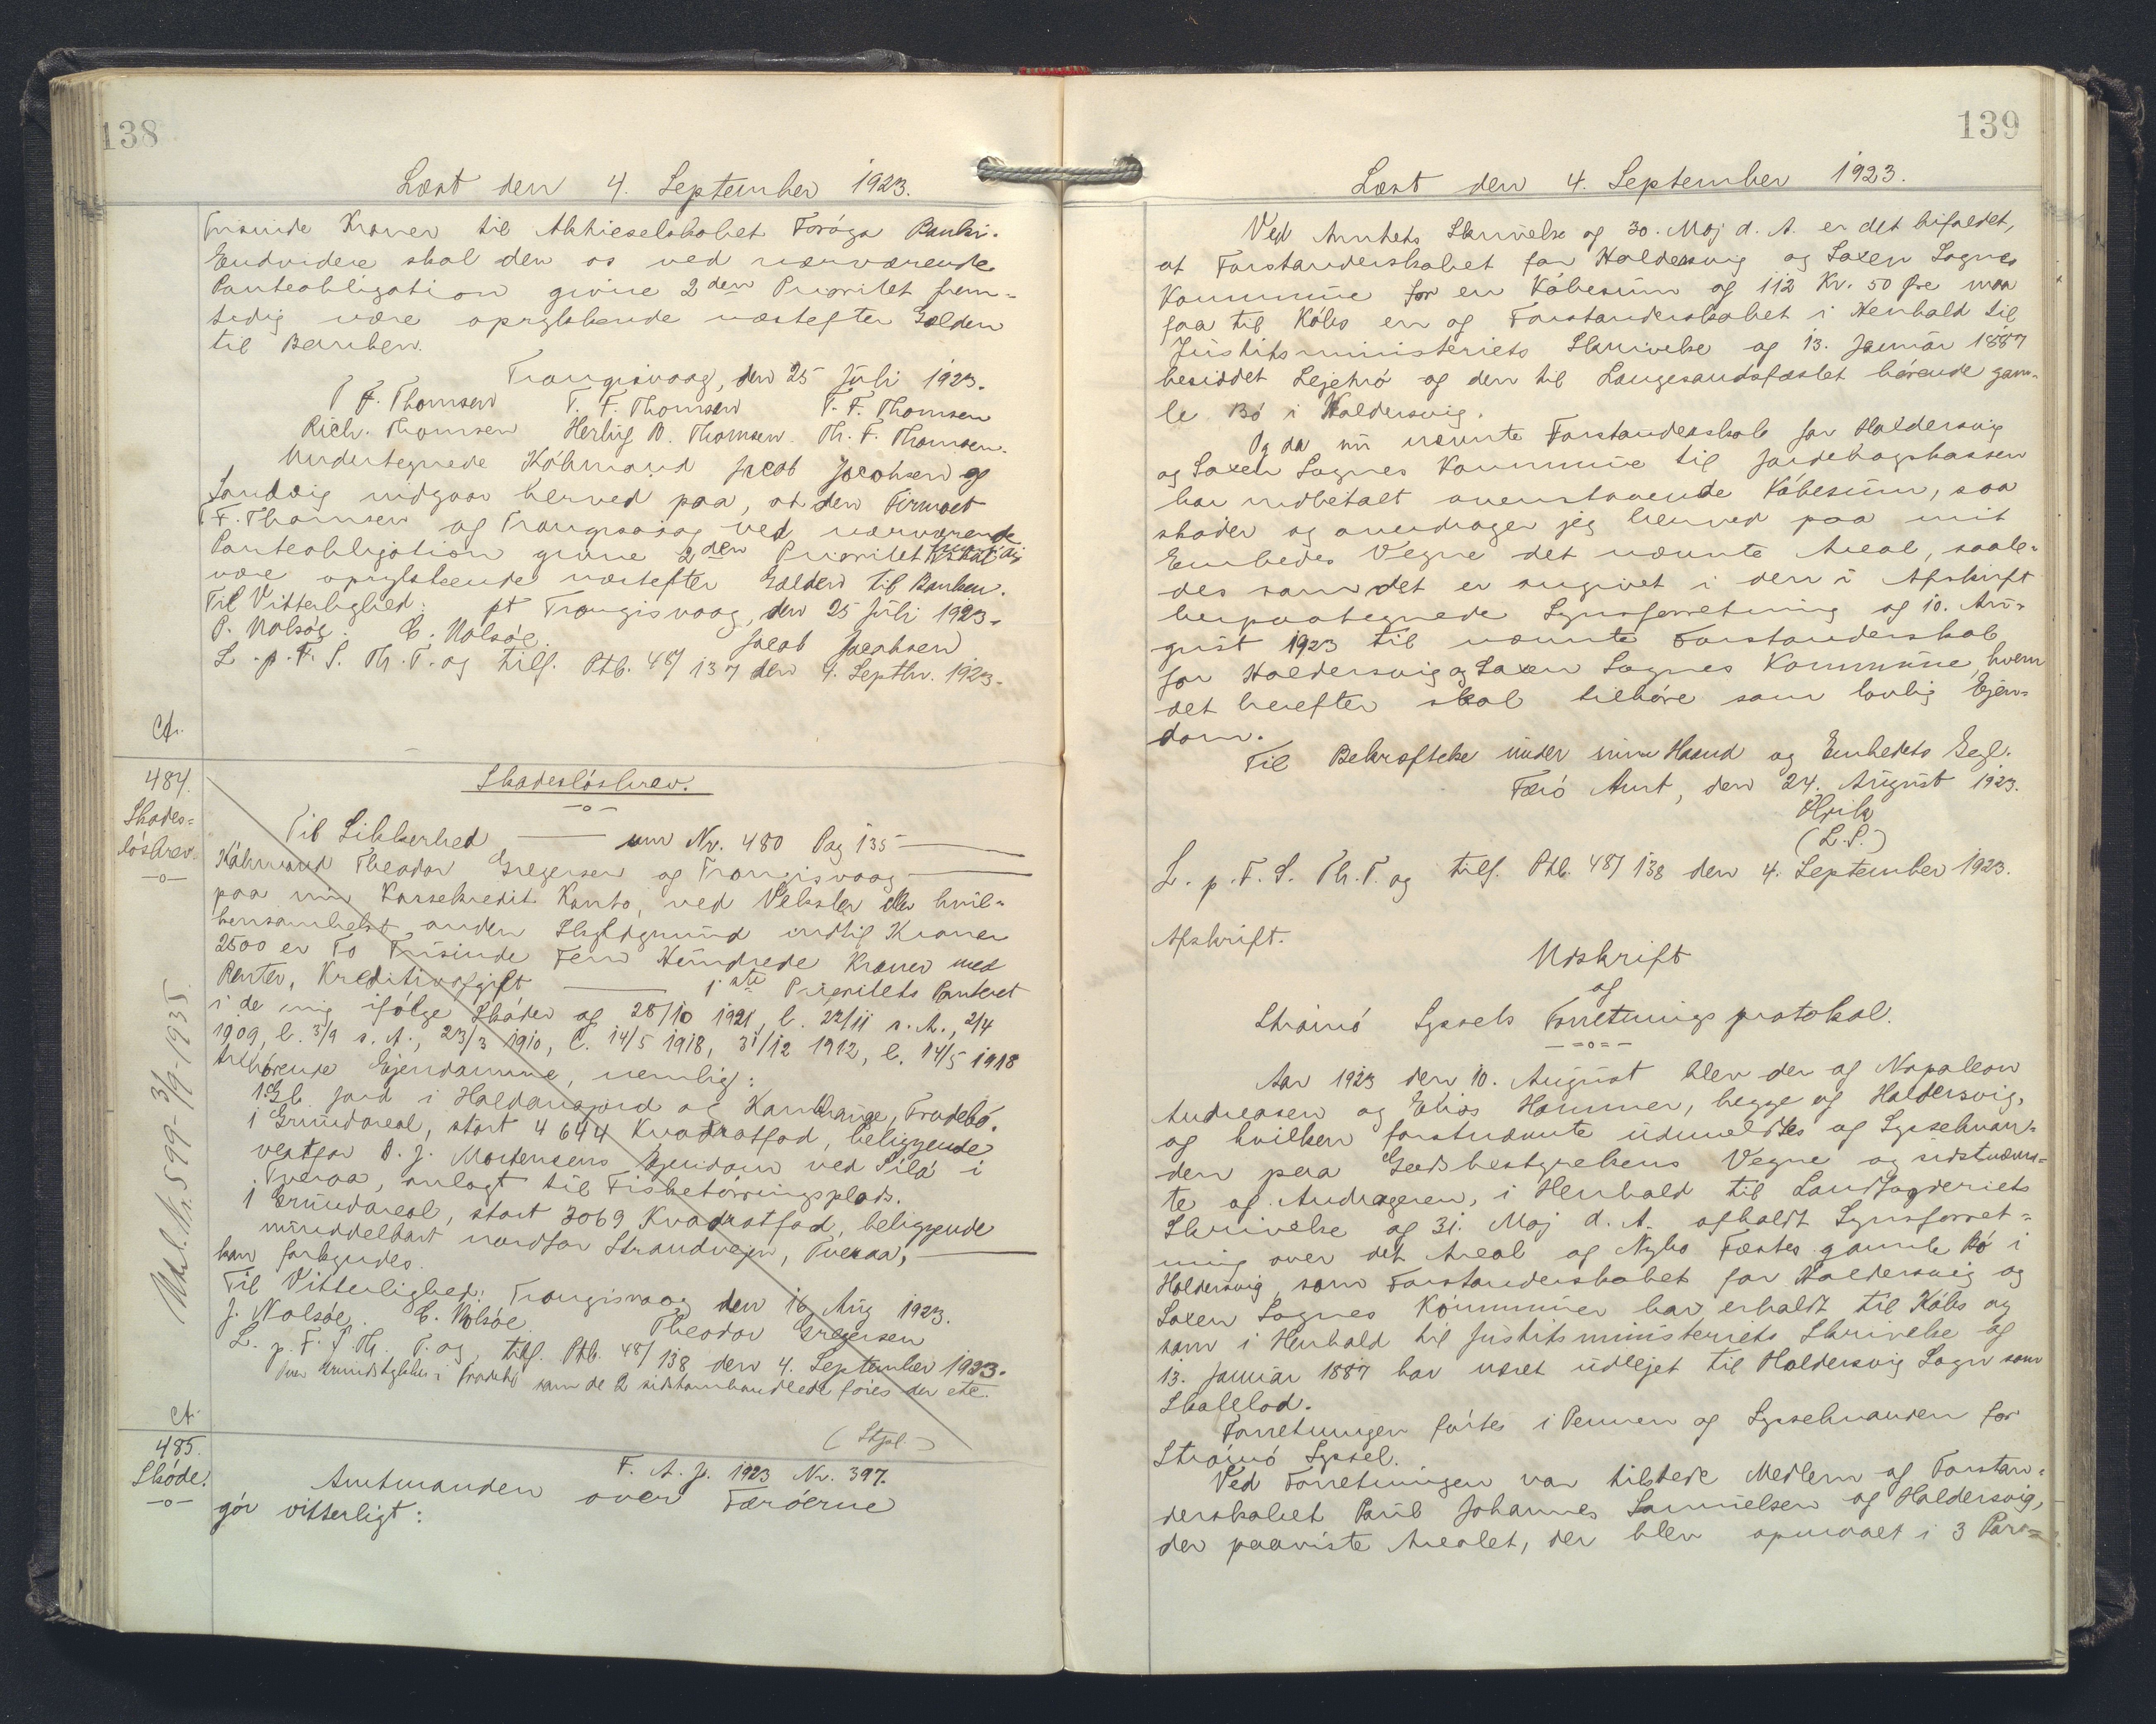 138
Læst den 4. September 1923.
tusinde Kroner til Aktieselskabet Foróya Banki.
Endvidere skal den os ved nærværende
Panteobligation givne 2den Prioritet frem-
tidig være oprykkende næstefter Gælden
til Banken.
Trangisvaag, den 25 Júli 1923.
T F. Thomsen T. F. Thomsen T. F. Thomsen
Rich. Thomsen Herluf D. Thomsen. Th. F. Thomsen.
Undertegnede Kóbmand Jacob Jacobsen af
Sandvig indgaar herved paa, at den Firmaet
T. F. Thomsen af Trangisvaag ved nærværende
Panteobligation givne 2den Prioritet fremtidig
være oprykkende næstefter Gælden til Banken.
Til Vitterlighed: pt Trangisvaag, den 25 Júli 1923.
P. Nolsóe. C. Nolsóe. Jacob Jacobsen
L. p. F. S. Th. T. og tilf. Ptb. 48/137 den 4. Septbr. 1923.
Ct.
484.
Skades=
lósbrev.
—o—
Skadeslósbrev.
—o—
Til Sikkerhed — um Nr. 480 Pag 135 —
Kóbmand Theodor Gregersen af Trangisvaag —
paa min Kassekredit Konto, ved Veksler eller hvil-
kensomhelst anden Skyldgrund indtil Kroner
2500 er To Túsinde Fem Húndrede Kroner med
Renter, Kreditivafgift — 1ste Prioritets Panteret
i de mig ifólge Skóder af 28/10 1921, l. 22/11 s. A., 2/4
1909, l. 3/9 s. A., 23/3 1910, l. 14/5 1918, 31/12 1912, l. 14/5 1918
tilhórende Ejendomme, nemlig:
1 Gl. Jord i Haldansgjord og Kambhauge, Frodebó.
1 Grúndareal, stort 4644 Kvadratfod, beliggende
vestfor D. J. Mortensens Ejendom ved Silá i
Tveraa, anlagt til Fisketórringsplads.
1 Grúndareal, stort 3069 Kvadratfod, beliggende
umiddelbart nordfor Strandvejen, Tveraa, —
kan forkyndes.
Til Vitterlighed: Trangisvaag den 16 Aug 1923.
J. Nolsóe. C. Nolsóe. Theodor Gregersen
L. p. F. S. Th. T. og tilf. Ptb. 48/138 den 4. September 1923.
i Frodebó som de 2 sidstomhandlede fóies der etc.
Udsl. Nr. 599 - 3/9 - 1935.
Ct.
485.
Skóde.
—o—
(Stpl —)
F. A. J. 1923 Nr. 397.
Amtmanden over Færóerne
gór vitterligt:
139
Læst den 4. September 1923.
Ved Amtets Skrivelse af 30. Maj d. A. er det bifaldet,
at Forstanderskabet for Haldersvig og Saxen Sognes
Kommúne for en Kóbesúm af 112 Kr. 50 Øre maa
faa til Kóbs en af Forstanderskabet i Henhold til
Jústitsministeriets Skrivelse af 13. Janúar 1887
besiddet Lejetró af den til Langesandsfæstet hórende gam-
le Bó i Haldersvig.
Og da nú nævnte Forstanderskab for Haldersvig
og Saxen Sognes Kommúne til Jordebogskassen
har indbetalt ovenstaaende Kóbesúm, saa
skóder og overdrager jeg herved paa mit
Embedes Vegne det nævnte Areal, saale-
des som det er angivet i den i Afskrift
herpaategnede Synsforretning af 10. Aú-
gúst 1923 til nævnte Forstanderskab
for Haldersvig og Saxen Sognes Kommúne, hvem
det herefter skal tilhóre som lovlig Ejen-
dom.
Til Bekræftelse únder min Haand og Embedets Segl.
Færó Amt, den 24. Aúgúst 1923.
(L.S.)
L. p. F. S. Th. T. og tilf. Ptb. 48/138 den 4. September 1923.
Afskrift.
Udskrift
af
Strómó Syssels Forretningsprotokol.
—=o=—
Aar 1923 den 10. Aúgúst blev der af Napoleon
Andreasen og Elias Hammer, begge af Haldersvig,
og hvilken forstnævnte údmeldtes af Sysselman-
den paa Godsbestyrelsens Vegne og sidstnævn=
te af Andrageren, i Henhold til Landfogderiets
Skrivelse af 31. Maj d. A. afholdt Synsforret=
ning over det Areal af Nybo Fæstes gamle Bó i
Haldersvig, som Forstanderskabet for Haldersvig og
Saxen Sognes Kommúner har erholdt til Kóbs og
som i Henhold til Jústitsministeriets Skrivelse af
13. Janúar 1887 har været údlejet til Haldersvig Sogn som
Skolelod.
Forretningen fórtes i Pennen af Sysselmanden for
Strómó Syssel.
Ved Forretningen var tilstede Medlem af Forstan=
derskabet Paúl Johannes Samúelsen af Haldersvig,
der paaviste Arealet, der blev opmaalt i 3 Par=